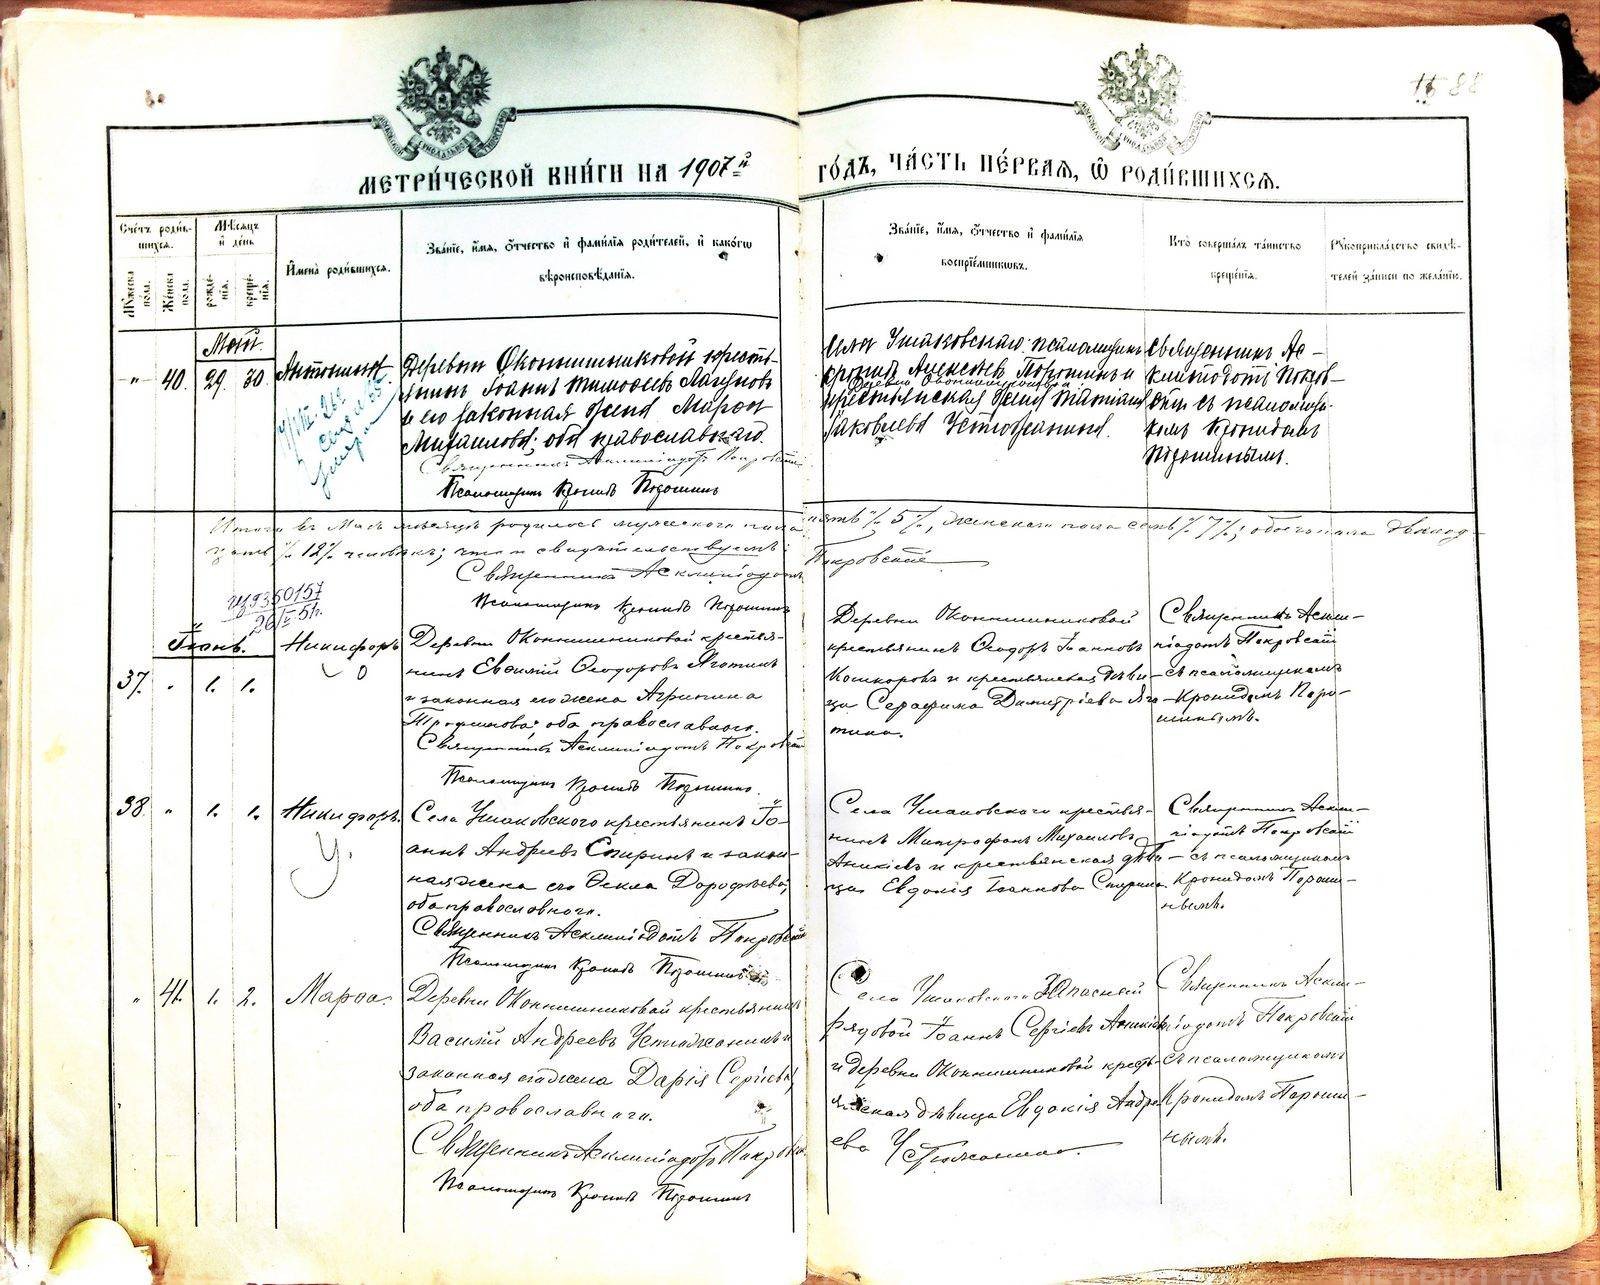 88
МЕТРИ́ЧЕСКОЙ КНИ́ГИ НА 1907й ГО́ДЪ, ЧА́СТЬ ПЕ́РВАЯ, Ѽ РОДИ́ВШИХСЯ.
Сче́тъ роди́вшихся.
Мѣ́сяцъ и҆ де́нь
Му́жеска по́ла.
Же́нска по́ла.
рожде́нїѧ.
креще́нїѧ.
И҆мена̀ роди́вшихся.
Зва́нїе, и҆́мѧ, ѻ҆́тчество и҆ фами́лїѧ роди́телей, и҆ како́гѡ
вѣроисповѣ́данїѧ.
Зва́нїе, и҆́мѧ, ѻ҆́тчество и҆ фами́лїѧ
воспрїе́мникѡвъ.
Кто̀ соверша́лъ та́инство
креще́нїѧ.
Рꙋкоприкла́дство свидѣ́-
телей за́писи по жела́нїю.
Май.
-"- 40. 29. 30. Антонина
Деревни Оконишниковой кресть-
янинъ Іоаннъ Тимоѳеевъ Лагуновъ
и его законная жена Марѳа
Михаилова; оба православнаго.
Священникъ Асклипіадотъ Покровскій
Псаломщикъ Кронидъ Порошинъ
Села Ушаковскаго псаломщикъ
Кронидъ Алексѣевъ Порошинъ и
крестьянская жена Татіана
Іаковлева Устюжанина.
Священникъ Ас-
клипіодотъ Покров-
скій съ псаломщи-
комъ Кронидомъ
Порошинымъ.
Итого въ Маѣ мѣсяцѣ родилось мужескаго пола пять % 5 %, женскаго пола семь % 7 %; обоего пола двѣнад-
цать % 12 % человѣкъ; что и свидѣтельствуемъ:
Священникъ Асклипіодотъ Покровскій
Псаломщикъ Кронидъ Порошинъ
Іюнь.
37. " 1. 1. Никифоръ
Деревни Оконишниковой крестья-
нинъ Евѳимій Ѳеодоровъ Яготинъ
и законная его жена Агрипина
Трофимова; оба православнаго.
Священникъ Асклипіодотъ Покровскій
Псаломщикъ Кронидъ Порошинъ.
Деревни Оконишниковой
крестьянинъ Ѳеодоръ Іоанновъ
Кошкаровъ и крестьянская дѣви-
ца Серафима Димитріева Яго-
тина.
Священникъ Аскли-
піодотъ Покровскій
съ псаломщикомъ
Кронидомъ Поро-
шинымъ.
38. " 1. 1. Никифоръ.
Села Ушаковскаго крестьянинъ Іо-
аннъ Андреевъ Спиринъ и закон-
ная жена его Ѳекла Дороѳѣева;
оба православнаго.
Священникъ Асклипіодотъ Покровскій
Псаломщикъ Кронидъ Порошинъ
Села Ушаковскаго крестья-
нинъ Митрофанъ Михаиловъ
Аникіевъ и крестьянская дѣви-
ца Евдокія Іоаннова Спирина
Священникъ Аскли-
піодотъ Покровскій
съ псаломщикомъ
Кронидомъ Пороши-
нымъ.
" 41. 1. 2. Марѳа.
Деревни Оконишниковой крестьянинъ
Василій Андреевъ Устюжанинъ и
законная его жена Дарія Сергіева,
оба православнаго.
Священникъ Асклипіодотъ Покровскій
Псаломщикъ Кронидъ Порошинъ
Села Ушаковскаго Запасный
рядовой Іоаннъ Сергіевъ Аникіевъ
и деревни Оконишниковой кресть-
янская дѣвица Евдокія Андре-
ева Устюжанина.
Священникъ Аскли-
піодотъ Покровскій
съ псаломщикомъ
Кронидомъ Пороши-
нымъ.